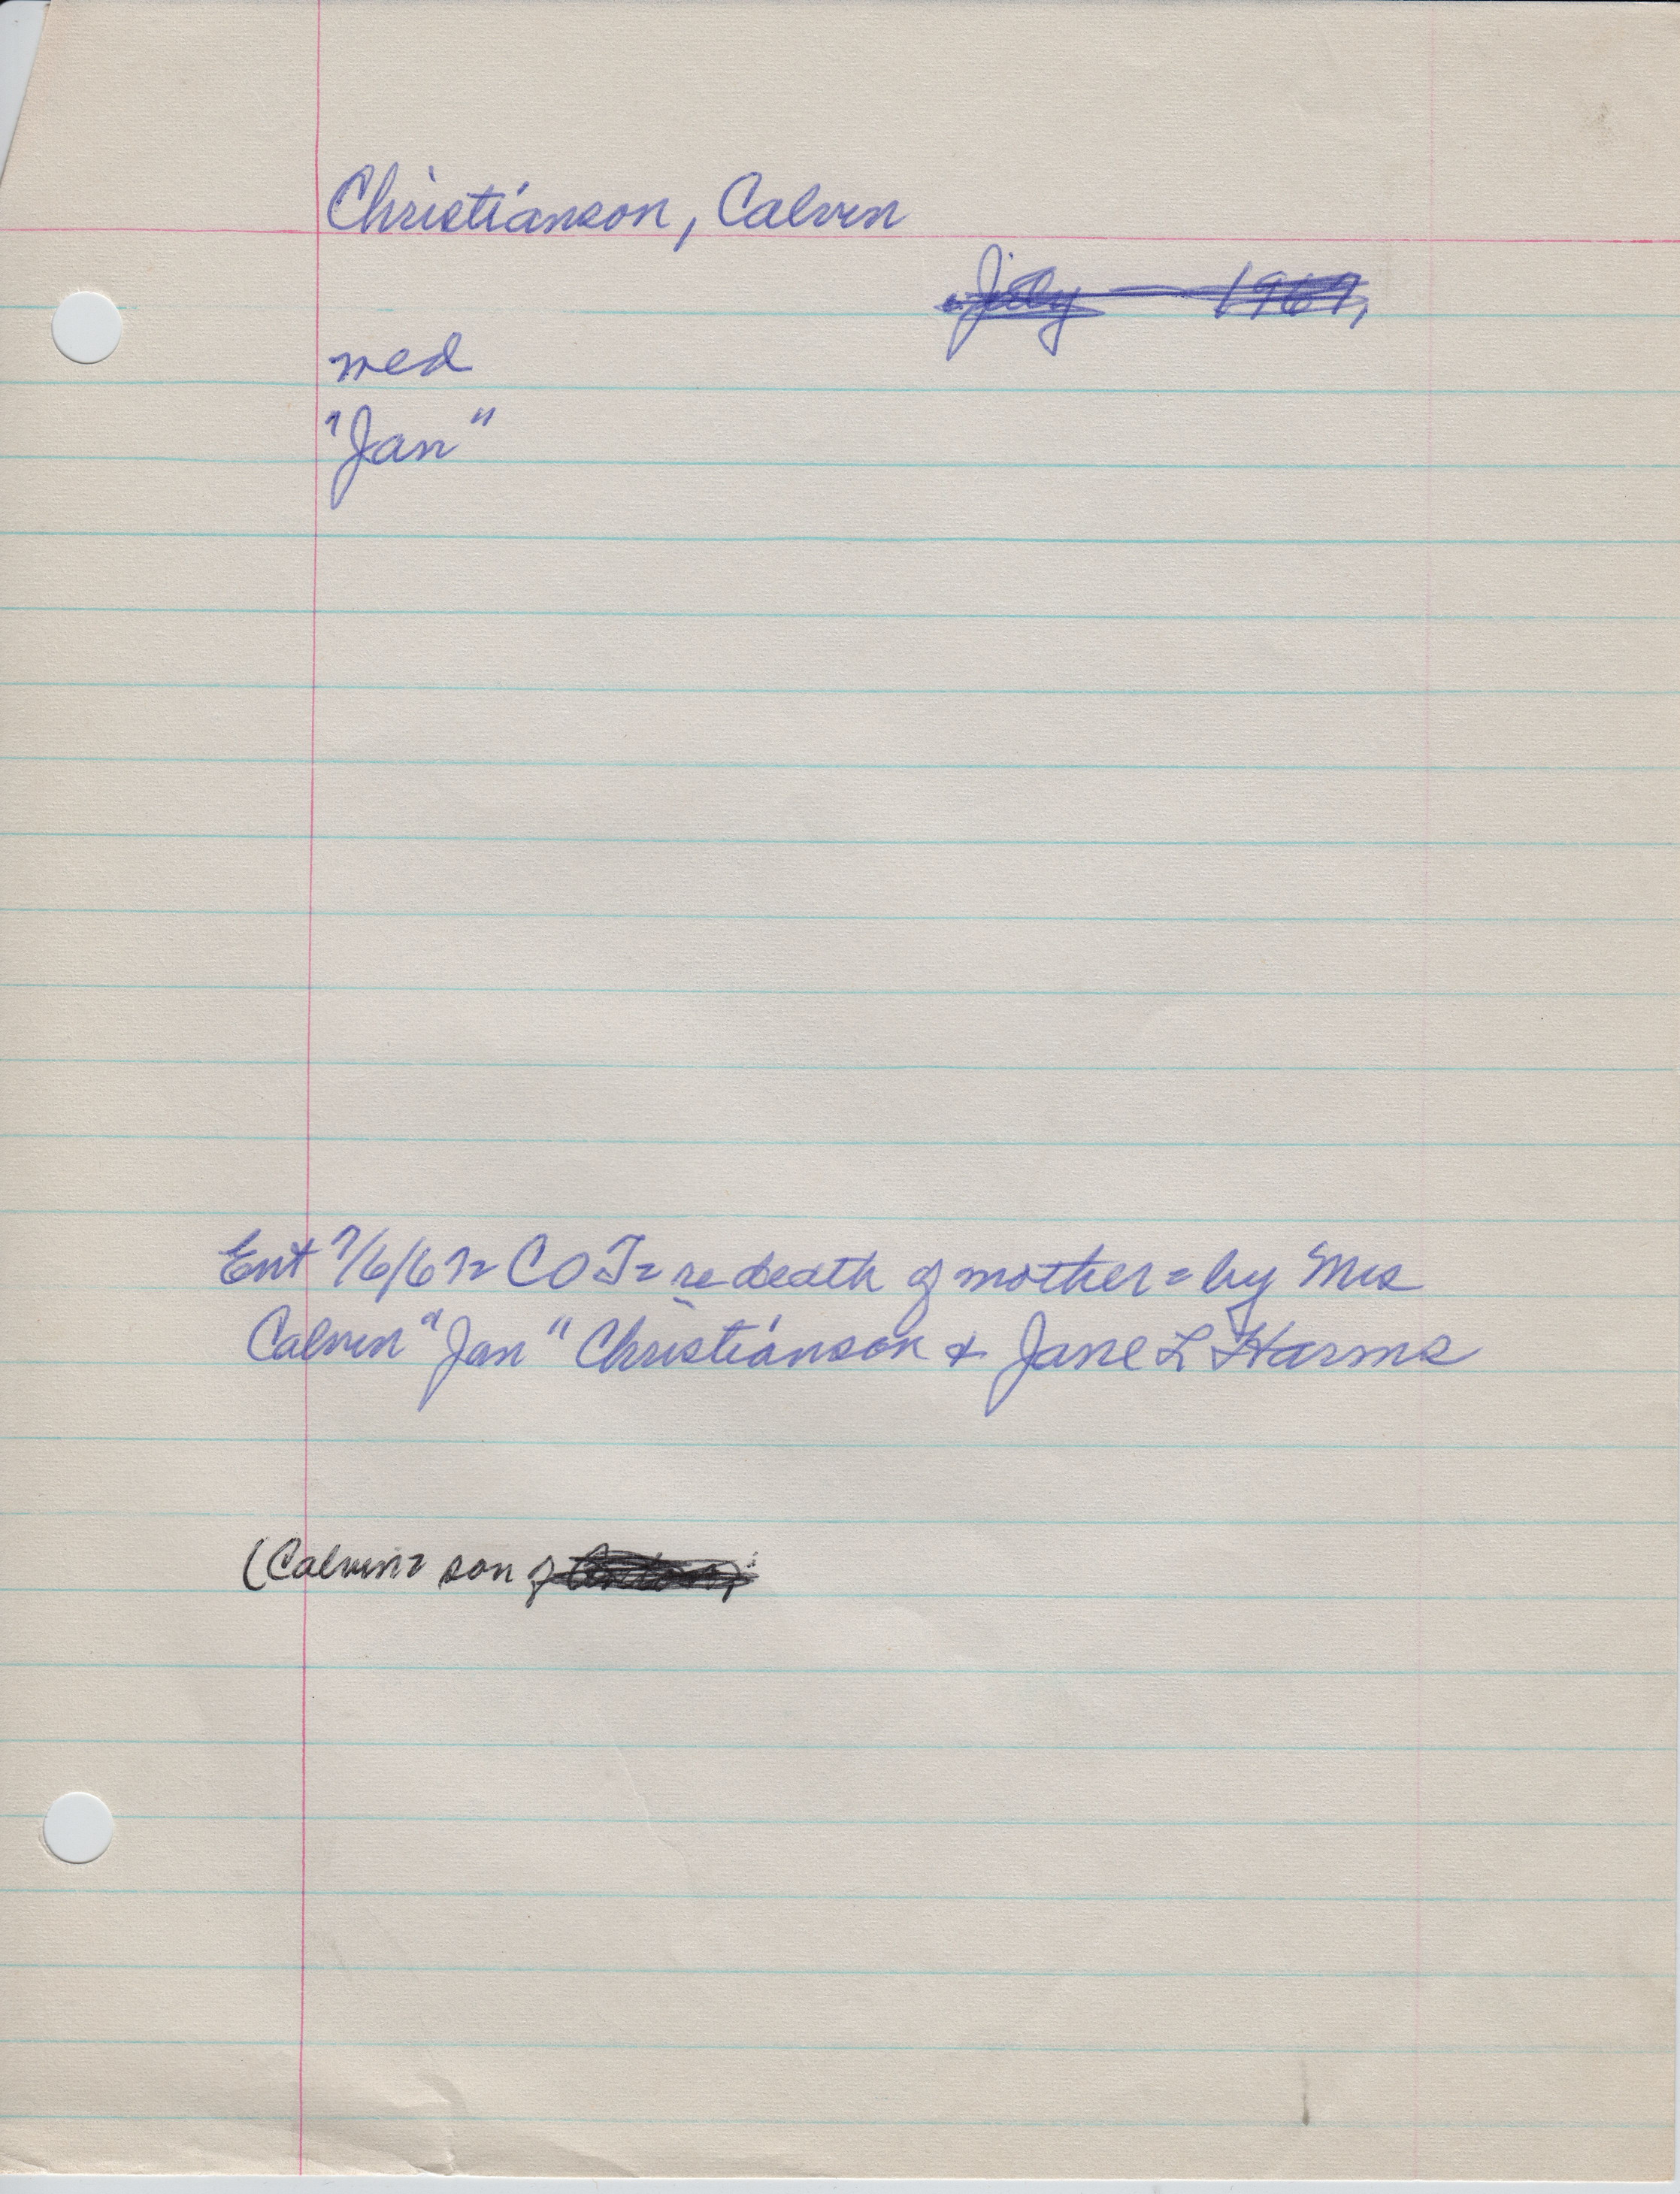 Christianson, Calvin
July — 1967,
med
"Jan"
Ent 7/6/67= COT= re death of mother = by Mrs
Calvin "Jan" Christianson + Jane L Harms
(Calvin= son of